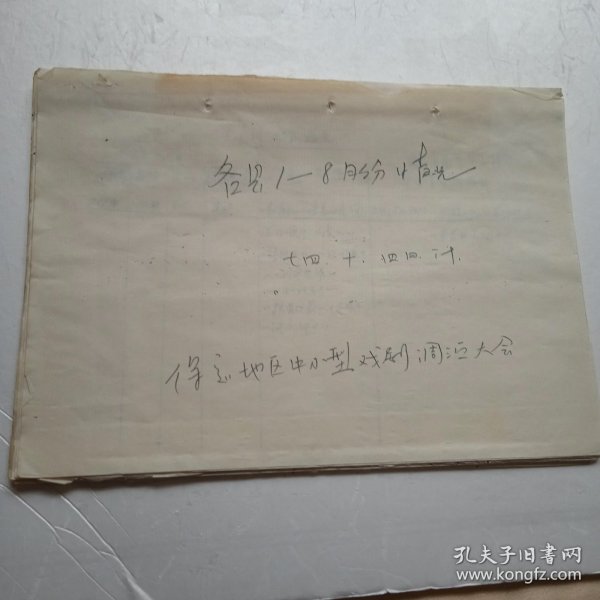 各县1—8月份情况
七四.十.四日.计.
保定地区中小型戏剧调演大会
孔夫子旧书网
www.kongfz.com